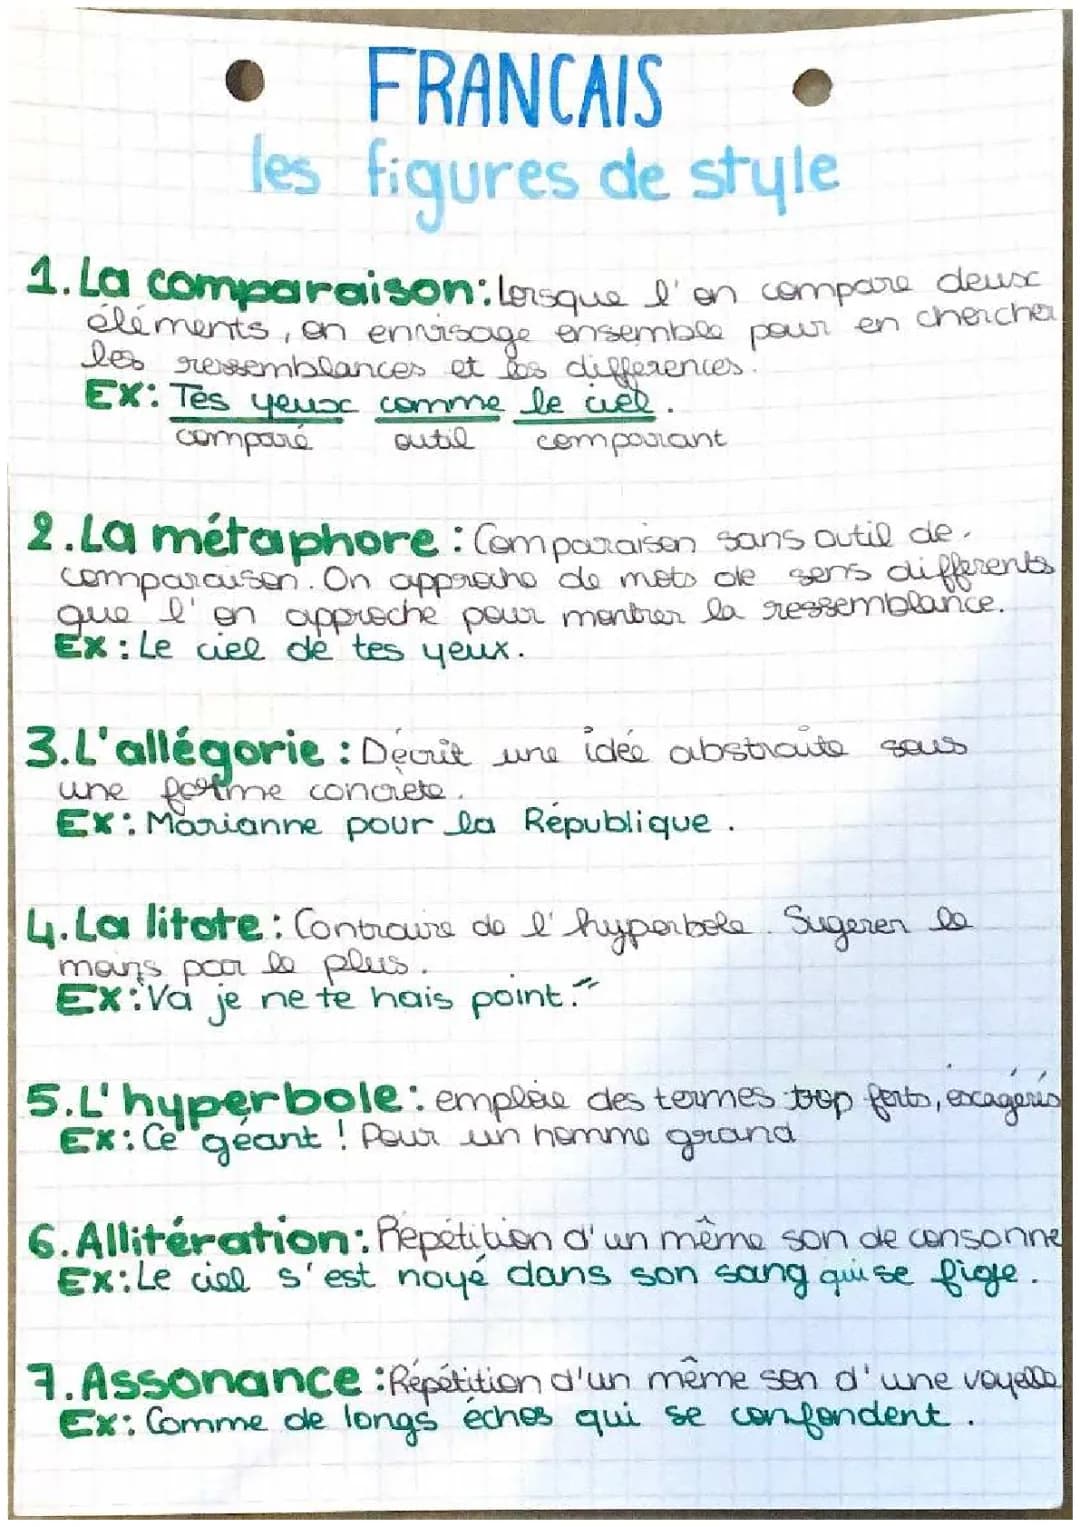 FRANCAIS
les figures de style
1. La comparaison: lorsque l'on compare deux
éléments, on envisage ensemble pour en chercher
les ressemblances et les differences.
EX: Tes yeux comme le ciel.
comparé outil comparant
2. La métaphore : Comparaison sans outil de
comparaison. On approche de mots de sens differents
que l'on approche pour montrer la ressemblance.
EX : Le ciel de tes yeux.
3. L'allégorie : Décrit une idée abstraite sous
une forme concrète.
EX : Marianne pour la République.
4. La litote : Contraire de l'hyperbole. Sugerer le
moins pour le plus.
EX : "Va je ne te hais point."
5. L'hyperbole : emploie des termes trop forts, exagérés
EX : Ce géant ! Pour un homme grand
6. Allitération : Répétition d'un même son de consonne
EX : Le ciel s'est noyé dans son sang qui se fige.
7. Assonance : Répétition d'un même son d'une voyelle
EX : Comme de longs échos qui se confondent.